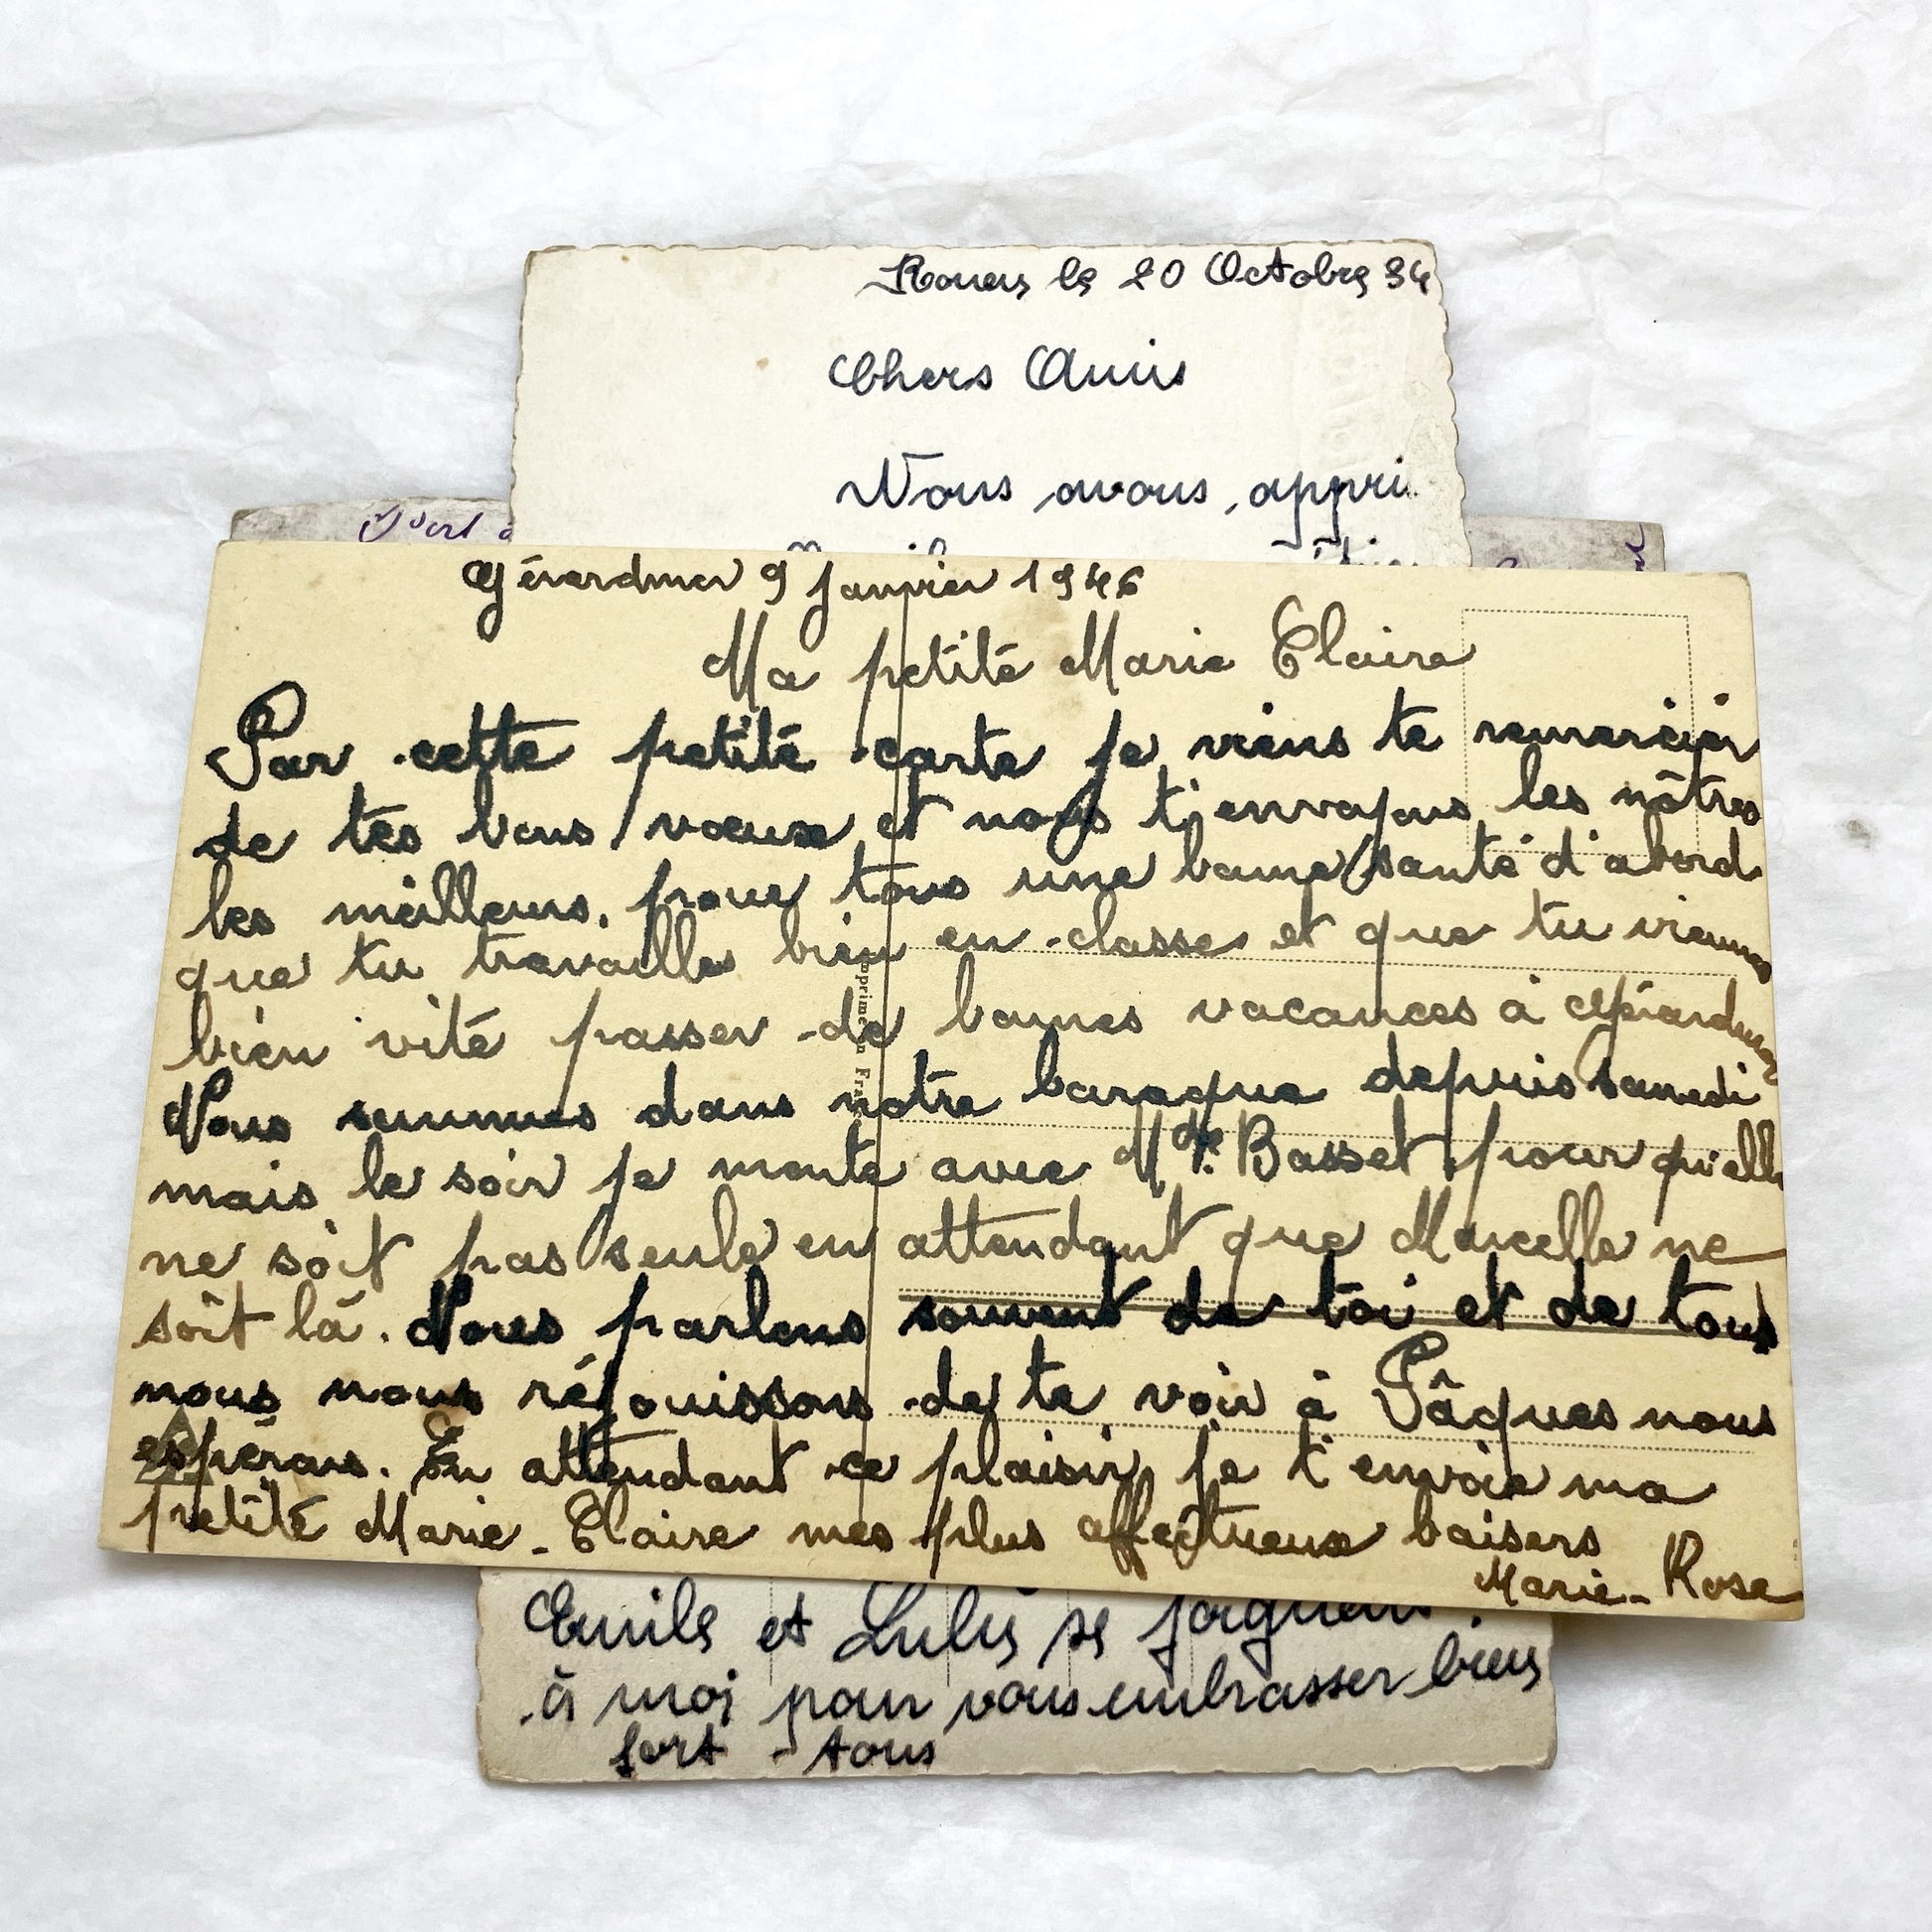 Rouen le 20 Octobre 34
Chers Amis
Nous avons appri
Gérardmer 9 Janvier 1946
Ma petite Marie Claire
Par cette petite carte je viens te remercier
de tes bons vœux et nous t'envoyons les nôtres
les meilleurs, pour tous une bonne santé d'abord
que tu travailles bien en classe et que tu viennes
bien vite passer de bonnes vacances à Gérardmer
Nous sommes dans notre baraque depuis samedi
mais le soir je monte avec Mde. Basset pour qu'elle
ne soit pas seule en attendant que Marcelle ne
soit là. Nous parlons souvent de toi et de tous
nous nous réjouissons de te voir à Pâques nous
espérons. En attendant ce plaisir je t'envoie ma
petite Marie-Claire mes plus affectueux baisers
Marie-Rose
Imprimé en France
Emile et Lulu se joignent
à moi pour vous embrasser bien
fort - tous